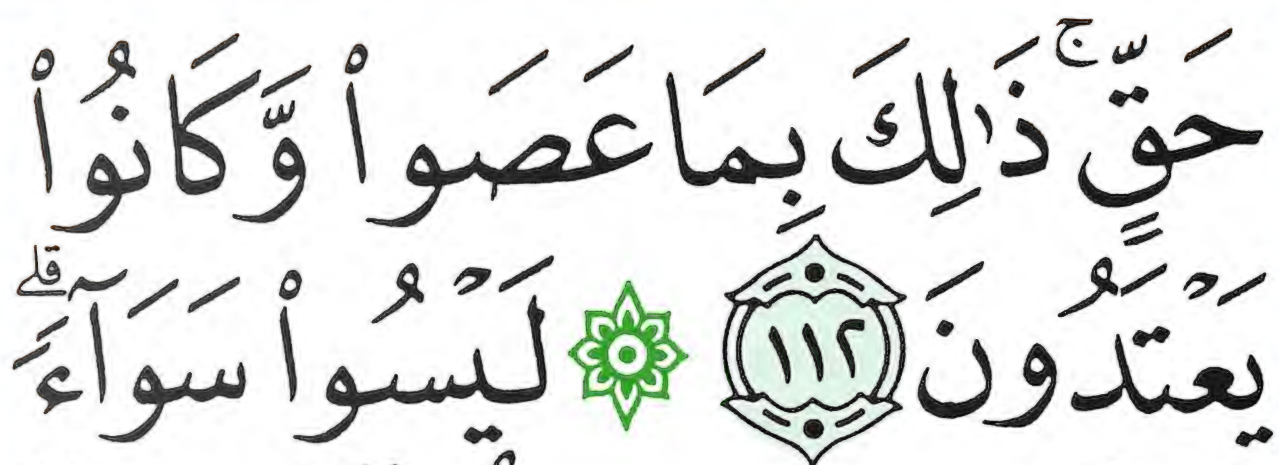 حَقٍّۚ ذَٰلِكَ بِمَا عَصَواْ وَّكَانُواْ
يَعْتَدُونَ ١١٢ ۞ لَيْسُواْ سَوَآءَۗ